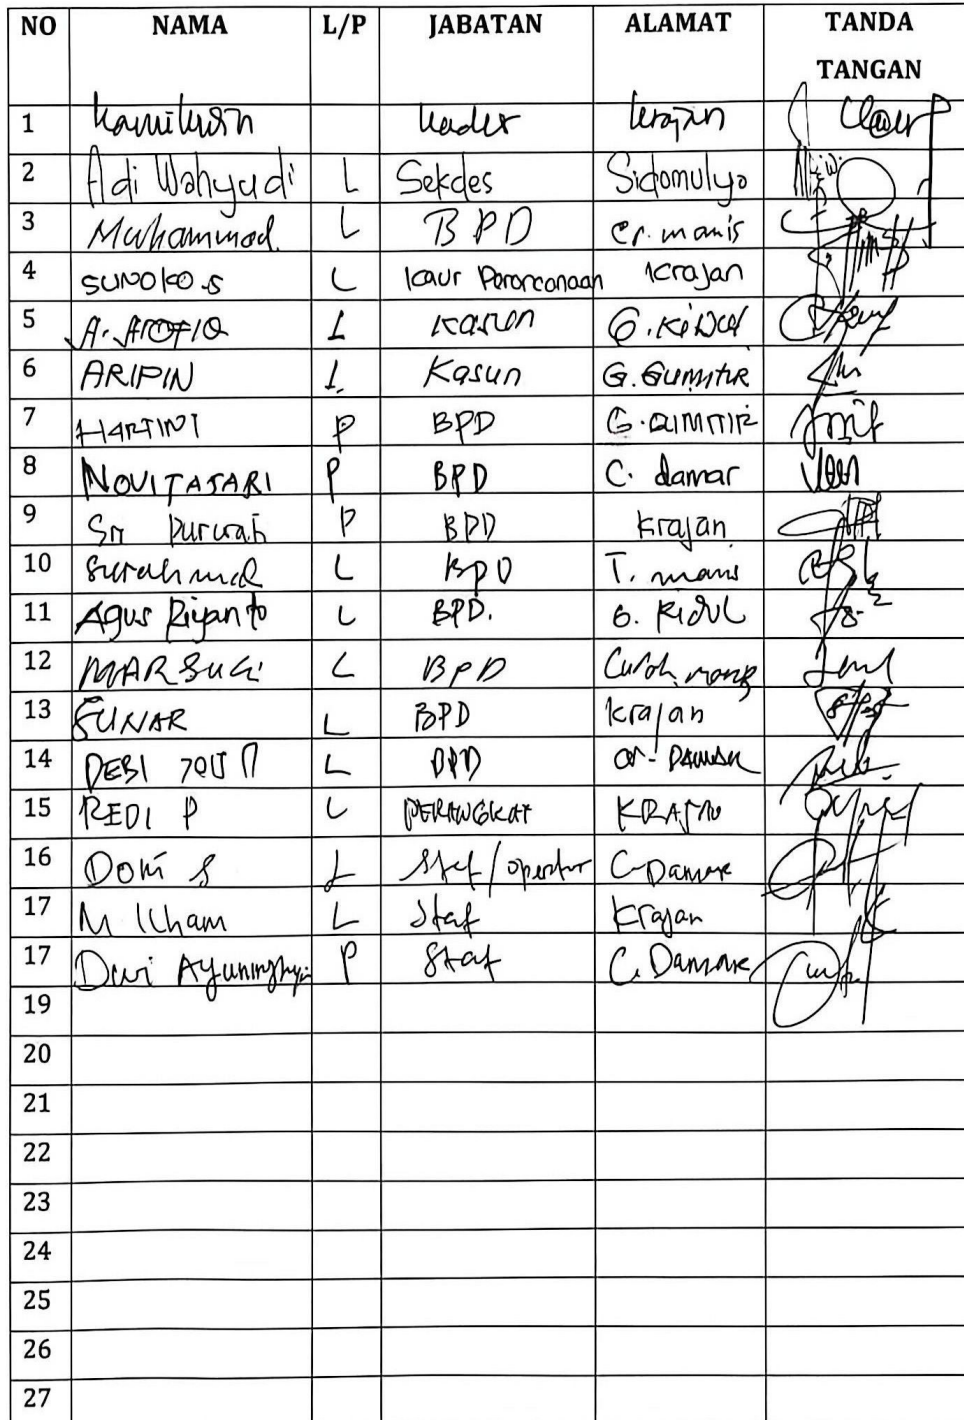 NO NAMA L/P JABATAN ALAMAT TANDA TANGAN
1 kader krajan
2 Adi Wahyudi L Sekdes Sidomulyo
3 Muhammad. L BPD cr. manis
4 SUNOKO.S L kaur Perencanaan krajan
5 L Kasun G. Kidul
6 ARIPIN L. Kasun G. GUMITIR
7 HARTINI P BPD G. GUMITIR
8 NOVITASARI P BPD C. damar
9 Sri P BPD krajan
10 L BPD T. manis
11 Agus Riyanto L BPD. G. Kidul
12 MARSUGI L BPD
13 SUNAR L BPD krajan
14 DEBI L BPD
15 REDI P L PERANGKAT KRAJAN
16 Doni S L Staf/operator C Damar
17 M Ilham L Staf Krajan
17 Dwi Ayuningtyas P Staf C. Damar
19
20
21
22
23
24
25
26
27